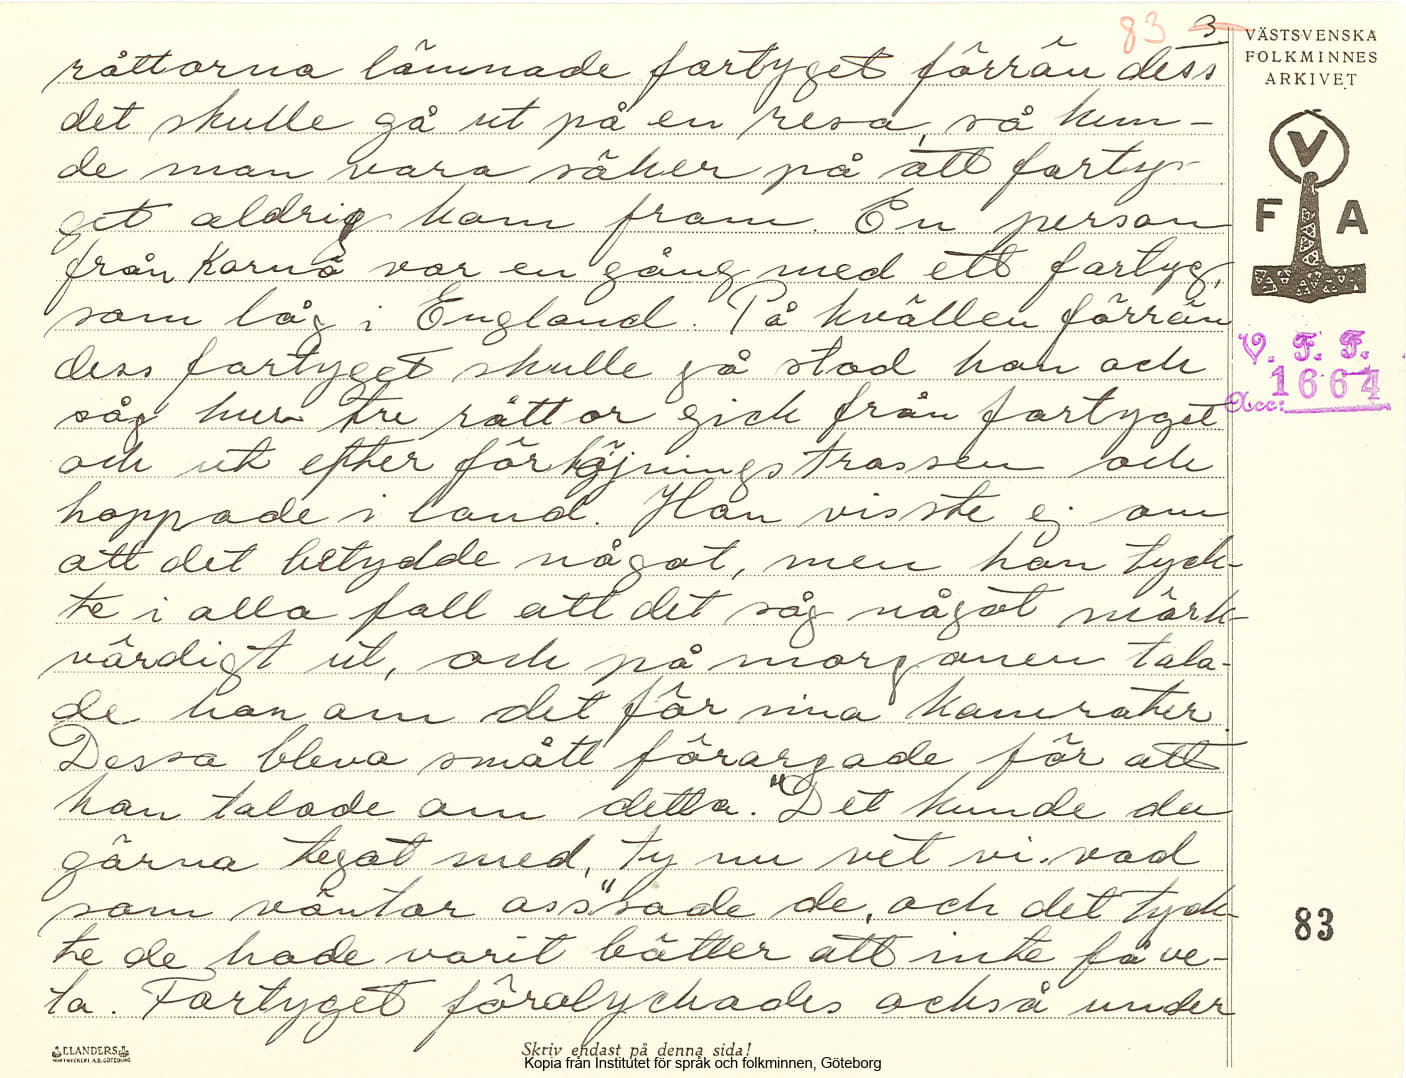 83 3
VÄSTSVENSKA
FOLKMINNES
ARKIVET
råttorna lämnade fartyget förrän dess
det skulle gå ut på en resa, så kun-
de man vara säker på att farty-
get aldrig kom fram. En person
från Karnö var en gång med ett fartyg,
som låg i England. På kvällen förrän
dess fartyget skulle gå stod han och
såg hur tre råttor gick från fartyget
och ut efter förtöjningstrossen och
hoppade i land. Han visste ej om
att det betydde något, men han tyck-
te i alla fall att det såg något märk-
värdigt ut, och på morgonen tala-
de han om det för sina kamrater.
Dessa bleva smått förargade för att
han talade om detta. "Det kunde du
gärna tegat med, ty nu vet vi vad
som väntar oss" sade de, och det tyck-
te de hade varit bätter att inte få ve-
ta. Fartyget förolyckades också under
V
F A
V. F. F.
Acc: 1664
83
ELANDERS
BOKTRYCKERI A.B. GÖTEBORG
Skriv endast på denna sida!
Kopia från Institutet för språk och folkminnen, Göteborg